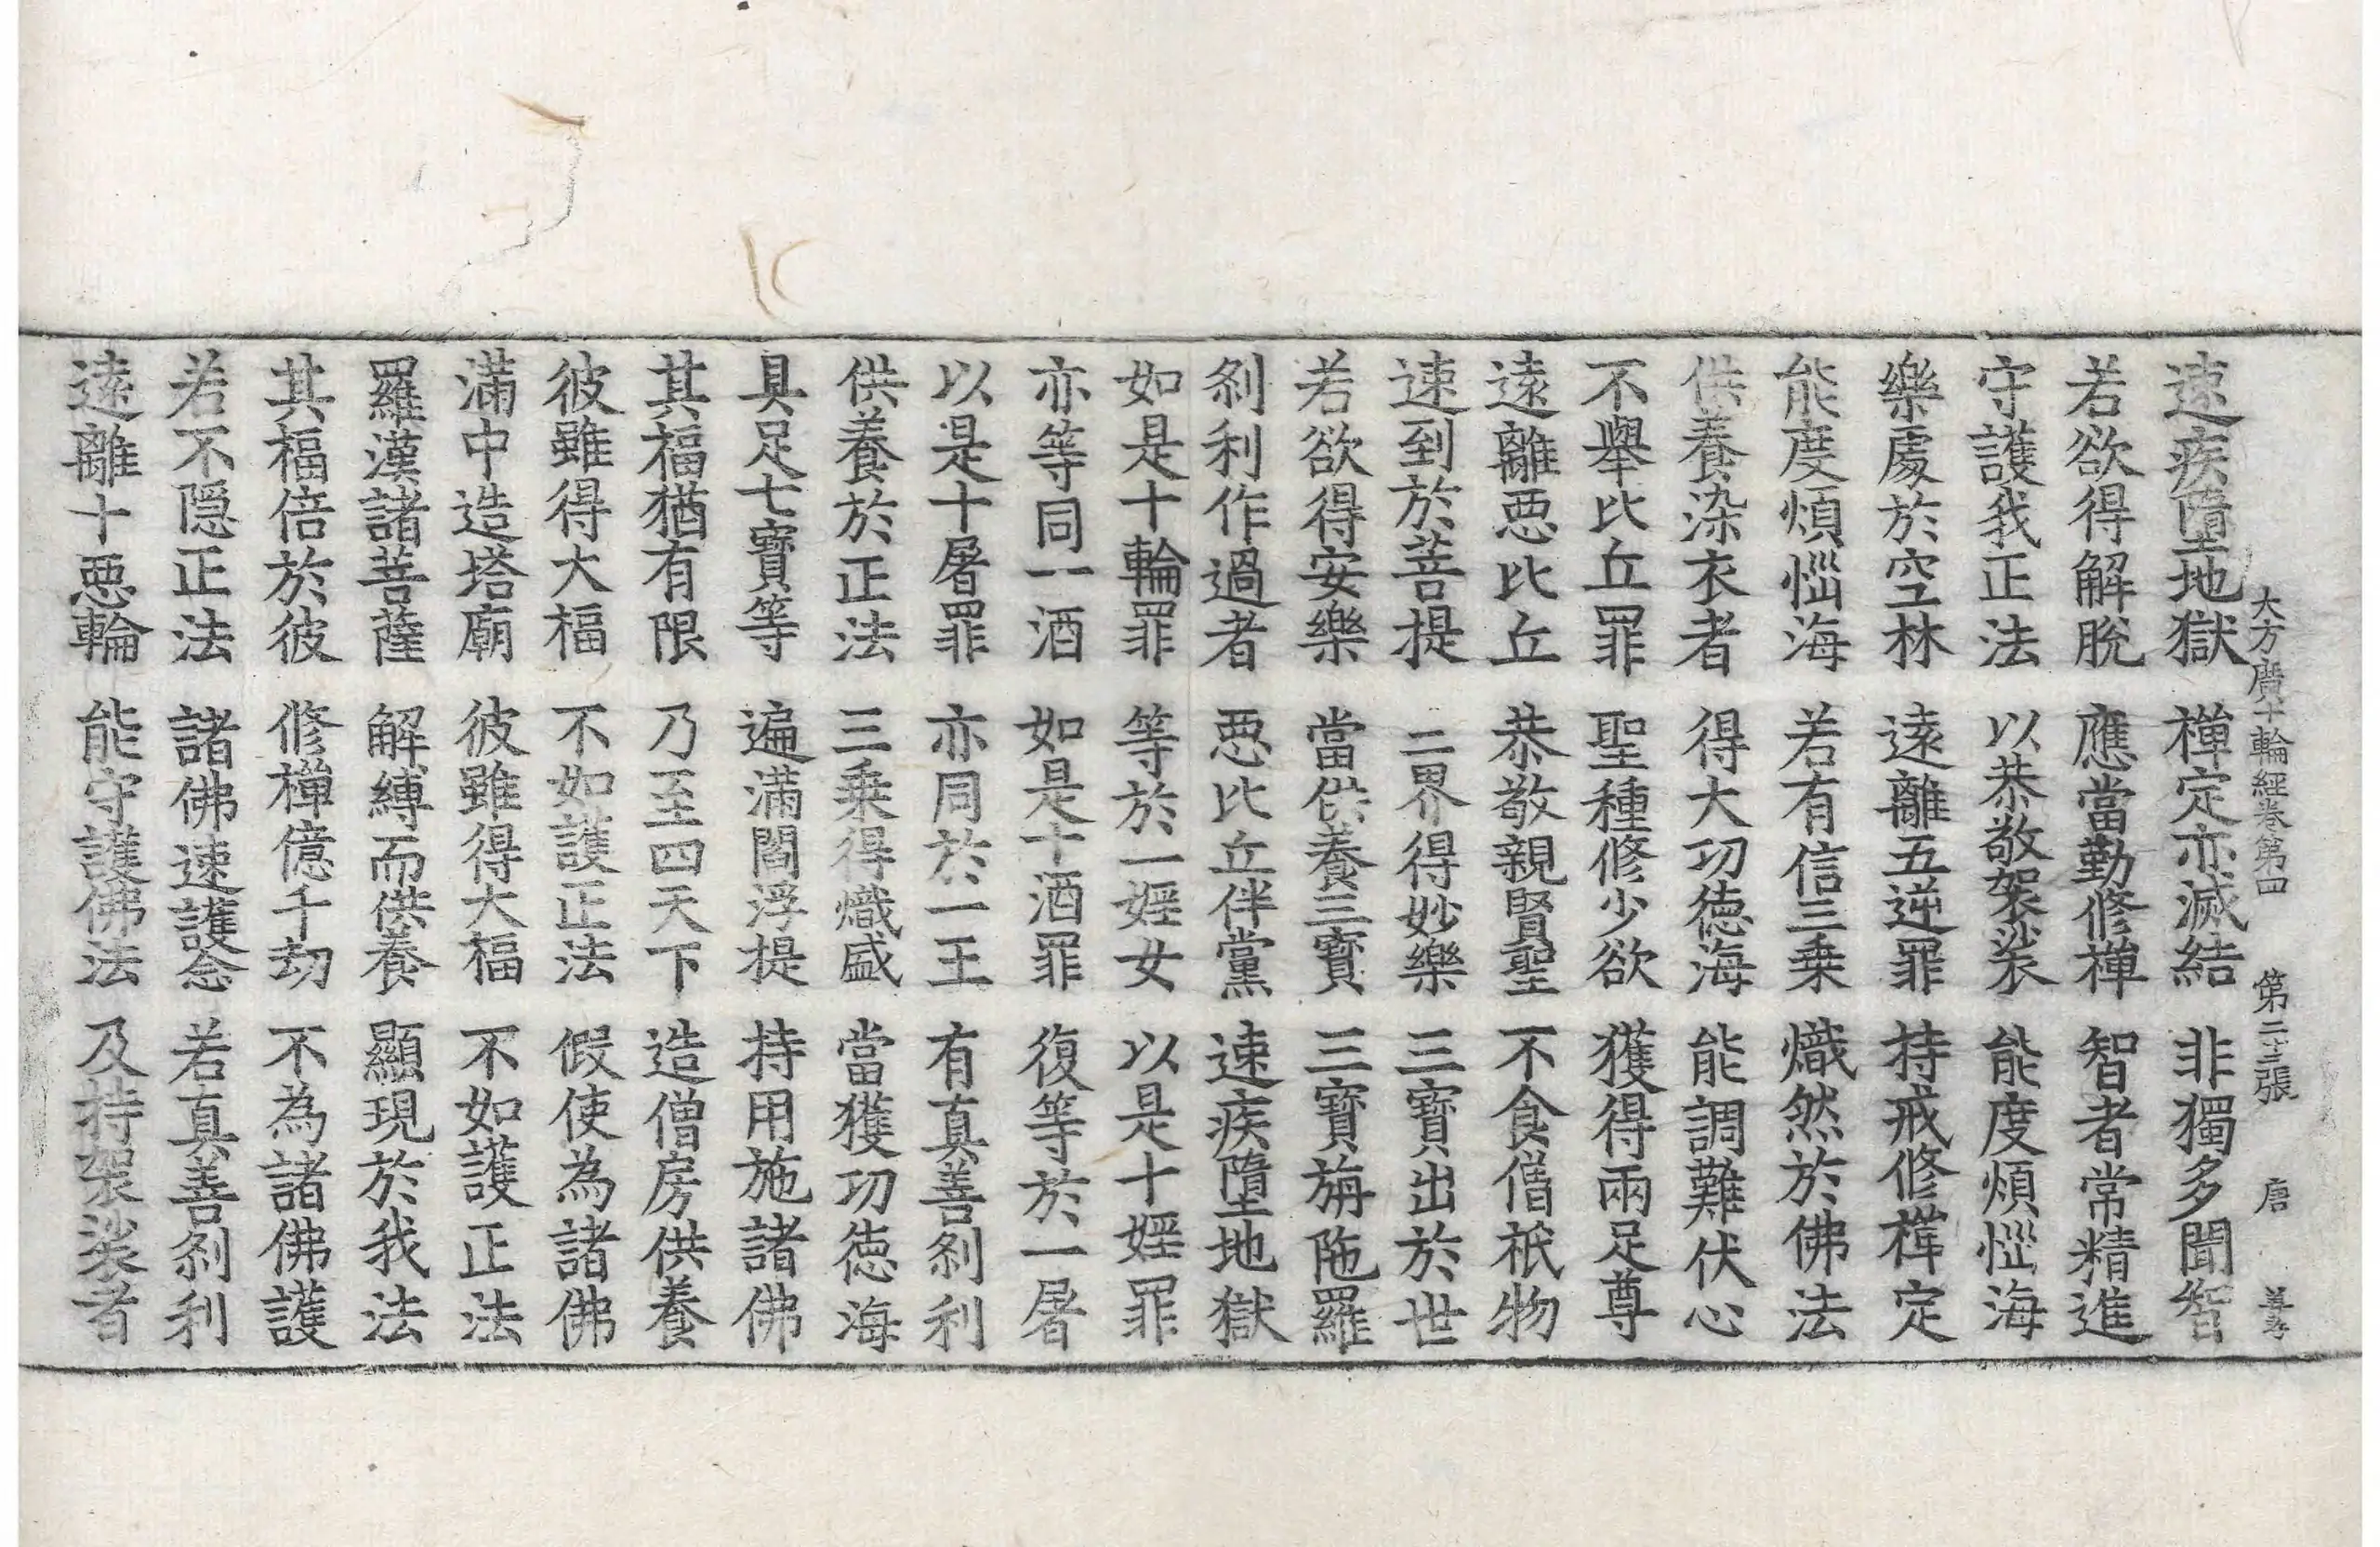 大方廣十輪經卷第四 第二十三張 唐
速疾墮地獄 禪定亦滅結 非獨多聞智
若欲得解脫 應當勤修禪 智者常精進
守護我正法 以恭敬袈裟 能度煩惱海
樂處於空林 遠離五逆罪 持戒修禪定
能度煩惱海 若有信三乘 熾然於佛法
供養染衣者 得大功德海 能調難伏心
不舉比丘罪 聖種修少欲 獲得兩足尊
遠離惡比丘 恭敬親賢聖 不食僧祇物
速到於菩提 二界得妙樂 三寶出於世
若欲得安樂 當供養三寶 三寶旃陁羅
剎利作過者 惡比丘伴黨 速疾墮地獄
如是十輪罪 等於一婬女 以是十婬罪
亦等同一酒 如是十酒罪 復等於一屠
以是十屠罪 亦同於一王 有真善剎利
供養於正法 三乘得熾盛 當獲功德海
具足七寶等 遍滿閻浮提 持用施諸佛
其福猶有限 乃至四天下 造僧房供養
彼雖得大福 不如護正法 假使為諸佛
滿中造塔廟 彼雖得大福 不如護正法
羅漢諸菩薩 解縛而供養 顯現於我法
其福倍於彼 修禪億千劫 不為諸佛護
若不隱正法 諸佛速護念 若真善剎利
遠離十惡輪 能守護佛法 及持袈裟者